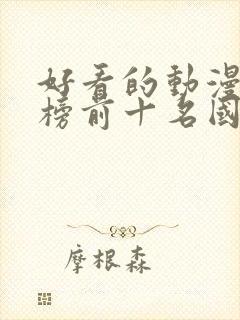 好看的動漫
榜前十名國
摩根森